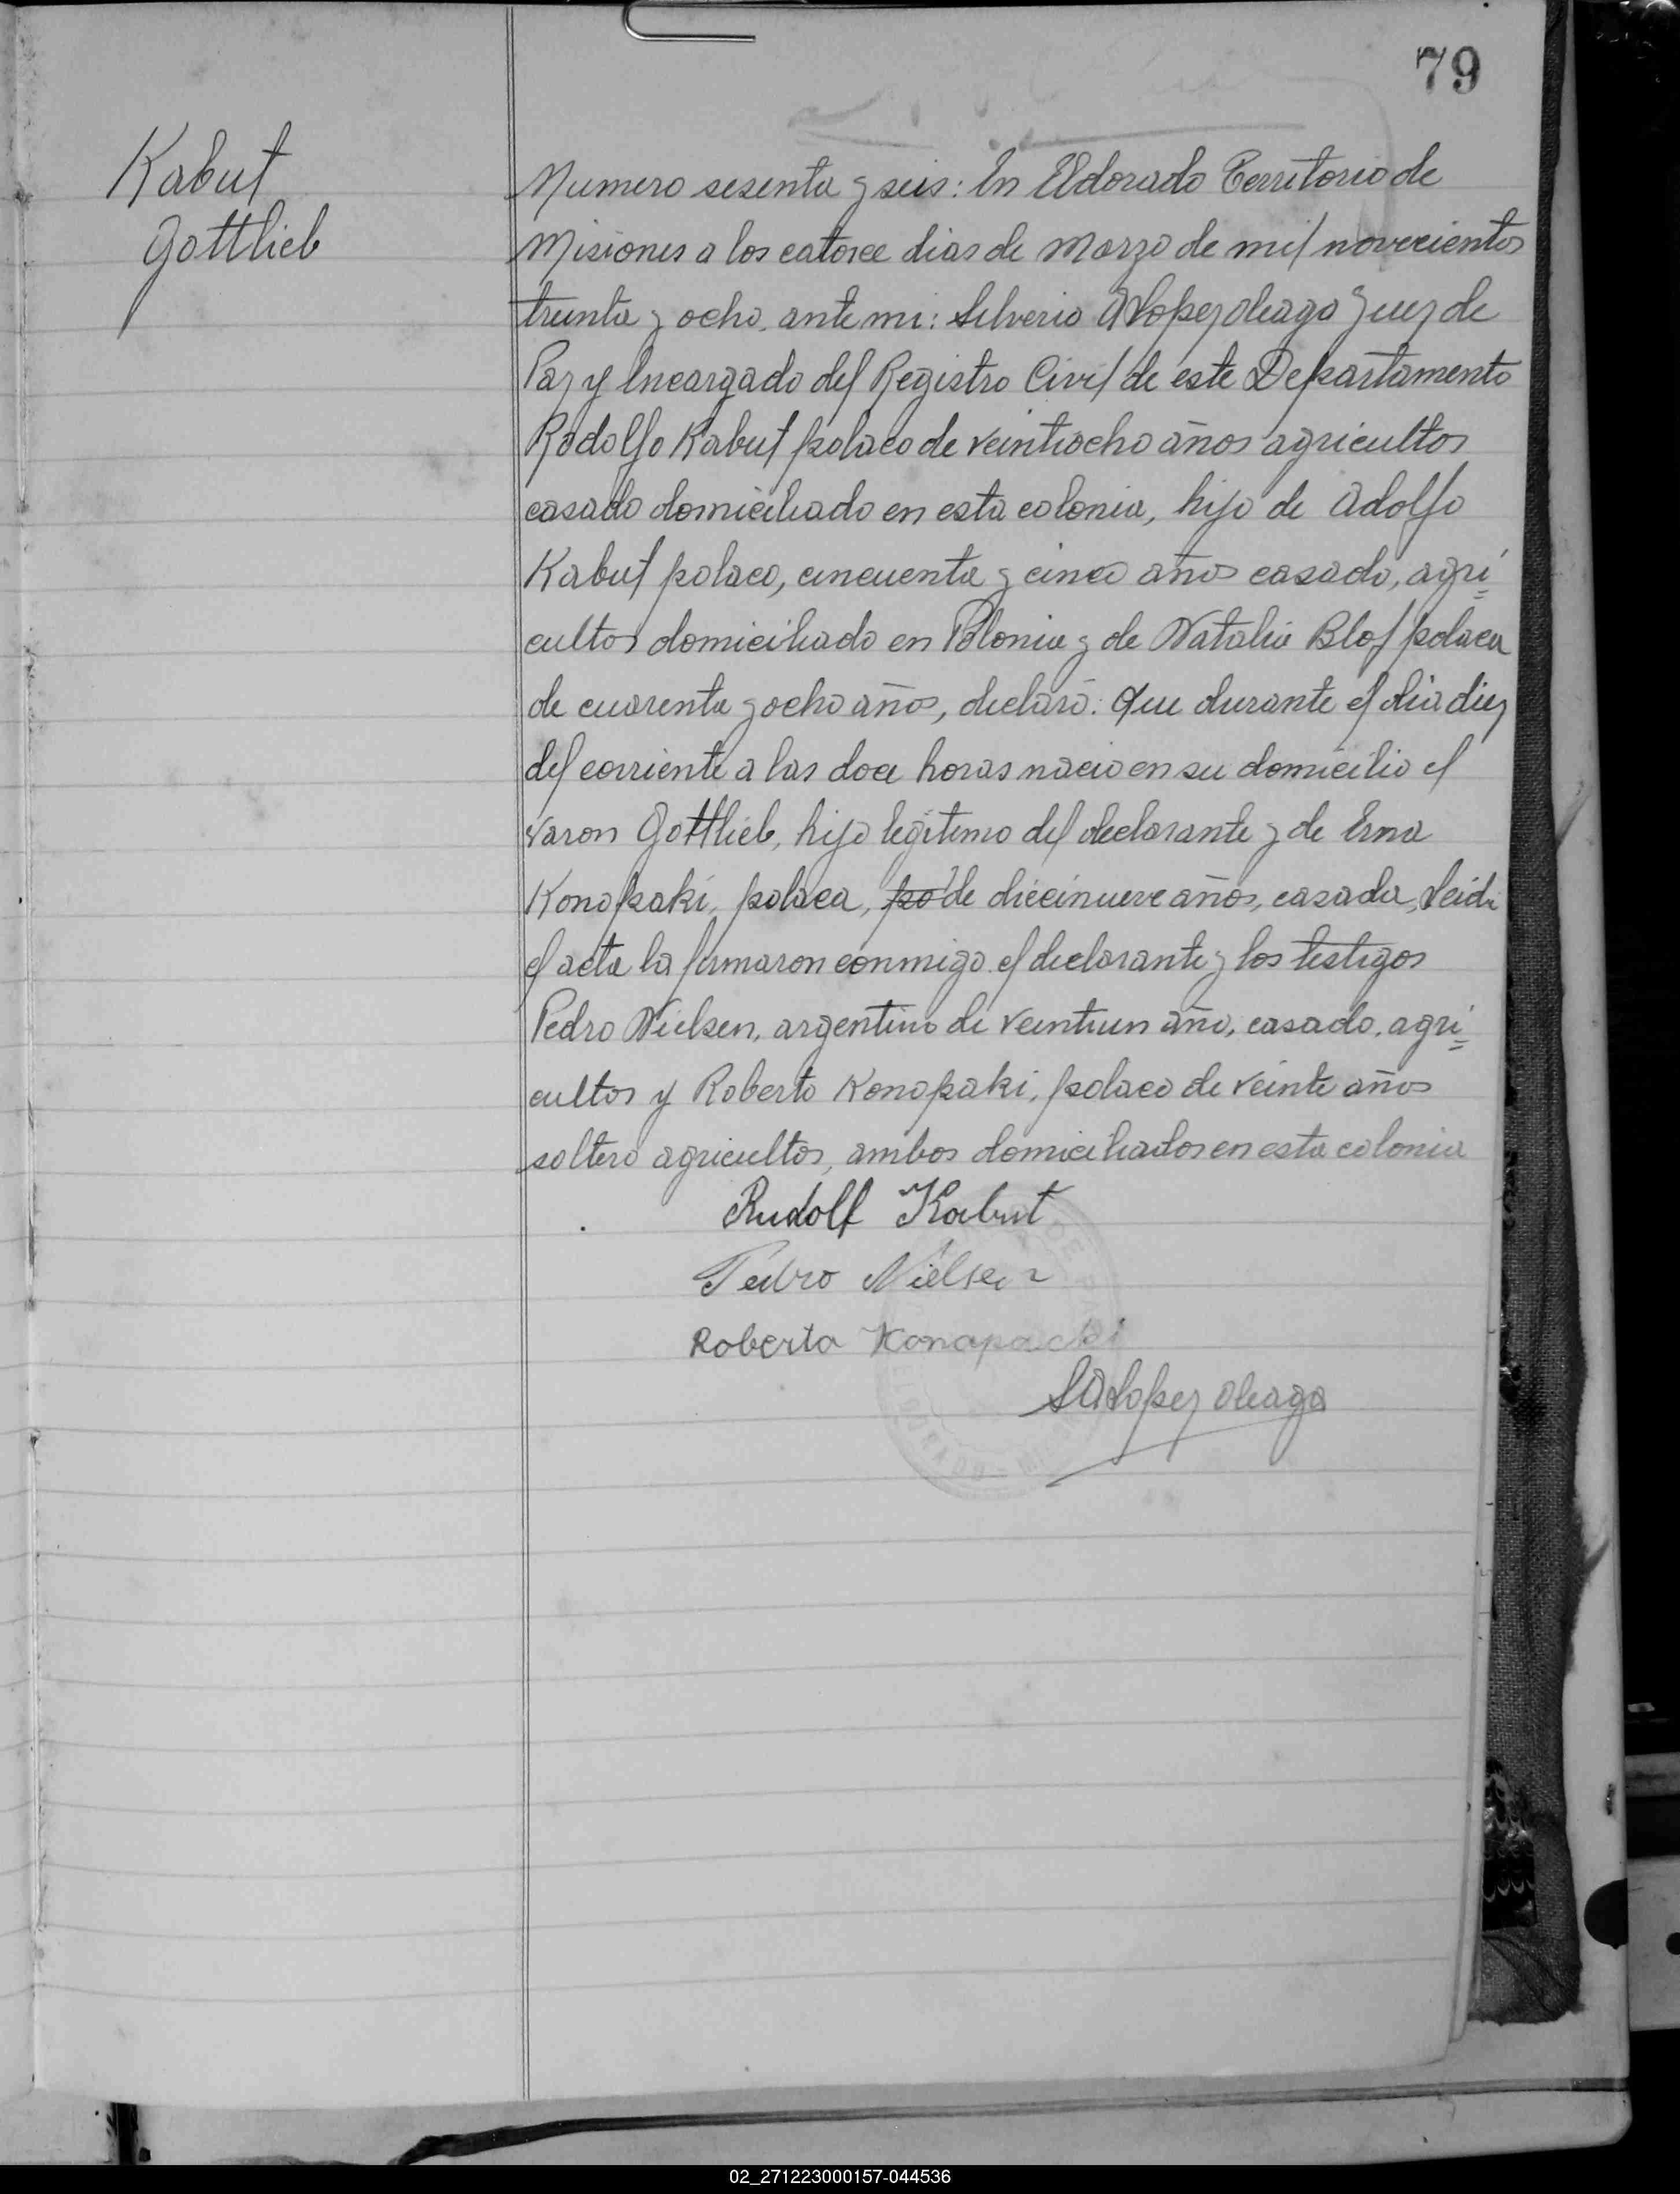 79
Kabut
Gottlieb
Numero sesenta y seis: En Eldorado Territorio de
Misiones a los catorce dias de Marzo de mil novecientos
treinta y ocho, ante mi: Silverio A Lopez Oleaga Juez de
Paz y Encargado del Registro Civil de este Departamento
Rodolfo Kabut polaco de veintiocho años agricultor
casado domiciliado en esta colonia, hijo de Adolfo
Kabut polaco, cincuenta y cinco años casado, agri=
cultor domiciliado en Polonia y de Natalia Blof polaca
de cuarenta y ocho años, declaró: Que durante el dia diez
del corriente a las doce horas nacio en su domicilio el
varon Gottlieb, hijo legitimo del declarante y de Erna
Konopaki, polaca, po de diecinueve años, casada, Leida
el acta la firmaron conmigo el declarante y los testigos
Pedro Nielsen, argentino de veintiun año, casado, agri=
cultor y Roberto Konopaki, polaco de veinte años
soltero agricultor, ambos domiciliados en esta colonia
Rudolf Kabut
Pedro Nielsen
Roberto Konapacki
SA Lopez Oleaga
02_271223000157-044536